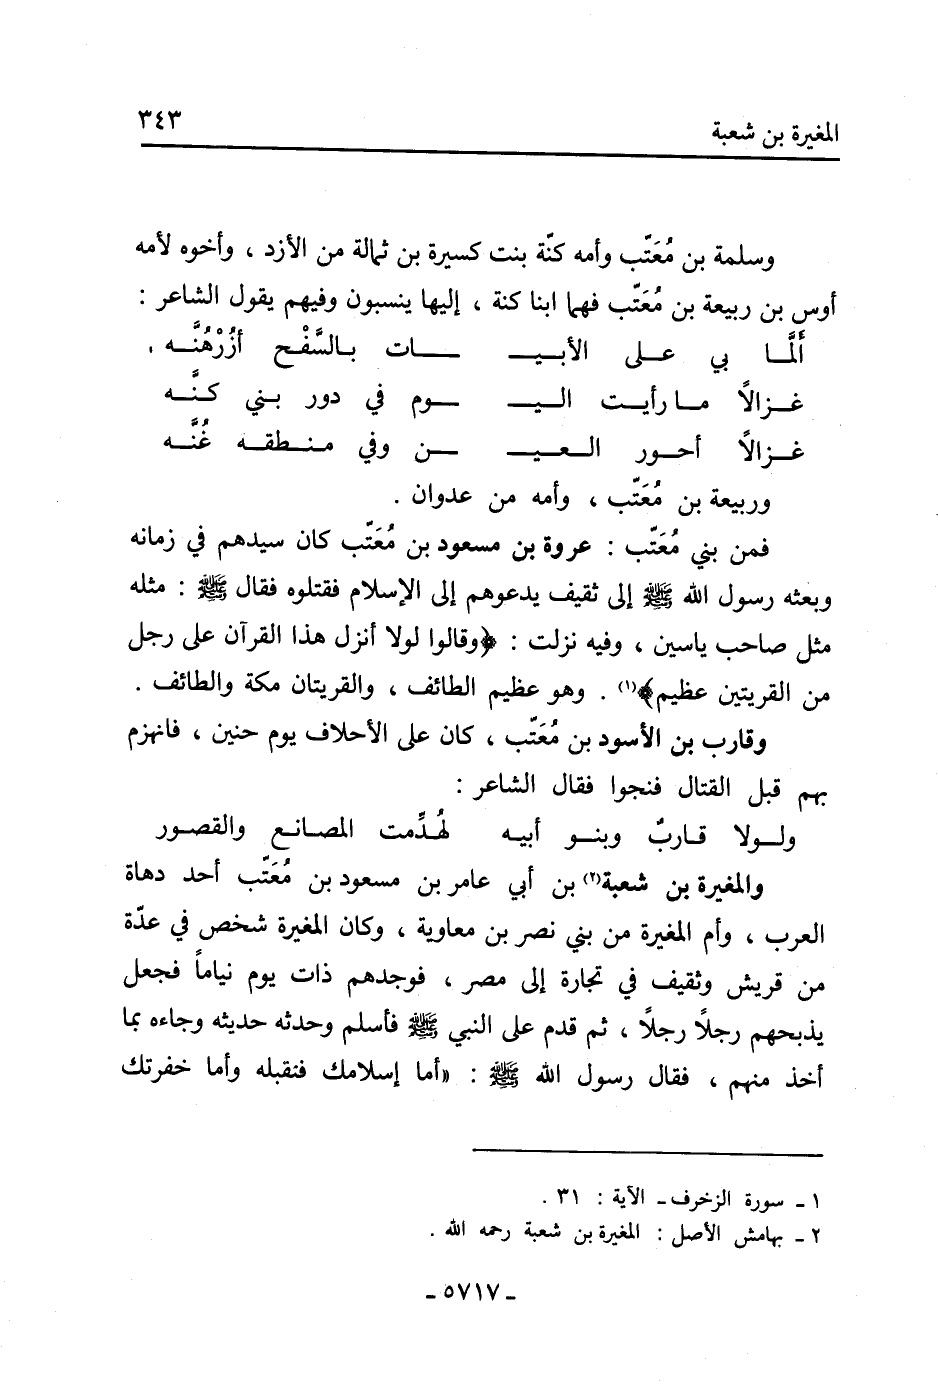 المغيرة بن شعبة ٣٤٣
وسلمة بن مُعَتّب وأمه كنّة بنت كسيرة بن ثمالة من الأزد ، وأخوه لأمه
أوس بن ربيعة بن مُعَتّب فهما ابنا كنة ، إليها ينسبون وفيهم يقول الشاعر :
ألَمَّـا بي علـى الأبـيـــات بـالسَّفْـح أزُرْهُنَّـه .
غـزالاً مـا رأيـت الـيـــوم في دور بـني كنَّـه
غـزالاً أحـور الـعـيـــن وفي مـنـطقـه غُنَّـه
وربيعة بن مُعَتّب ، وأمه من عدوان .
فمن بني مُعَتّب : عروة بن مسعود بن مُعَتّب كان سيدهم في زمانه
وبعثه رسول الله ﷺ إلى ثقيف يدعوهم إلى الإسلام فقتلوه فقال ﷺ : مثله
مثل صاحب ياسين ، وفيه نزلت : ﴿وقالوا لولا أنزل هذا القرآن على رجل
من القريتين عظيم﴾(١) . وهو عظيم الطائف ، والقريتان مكة والطائف .
وقارب بن الأسود بن مُعَتّب ، كان على الأحلاف يوم حنين ، فانهزم
بهم قبل القتال فنجوا فقال الشاعر :
ولـولا قـاربٌ وبنـو أبيـه لهُدِّمت المصانـع والقصـور
والمغيرة بن شعبة(٢) بن أبي عامر بن مسعود بن مُعَتّب أحد دهاة
العرب ، وأم المغيرة من بني نصر بن معاوية ، وكان المغيرة شخص في عدّة
من قريش وثقيف في تجارة إلى مصر ، فوجدهم ذات يوم نياماً فجعل
يذبحهم رجلاً رجلاً ، ثم قدم على النبي ﷺ فأسلم وحدثه حديثه وجاءه بما
أخذ منهم ، فقال رسول الله ﷺ : «أما إسلامك فنقبله وأما خفرتك
١ ـ سورة الزخرف ـ الآية : ٣١ .
٢ ـ بهامش الأصل : المغيرة بن شعبة رحمه الله .
ـ ٥٧١٧ ـ